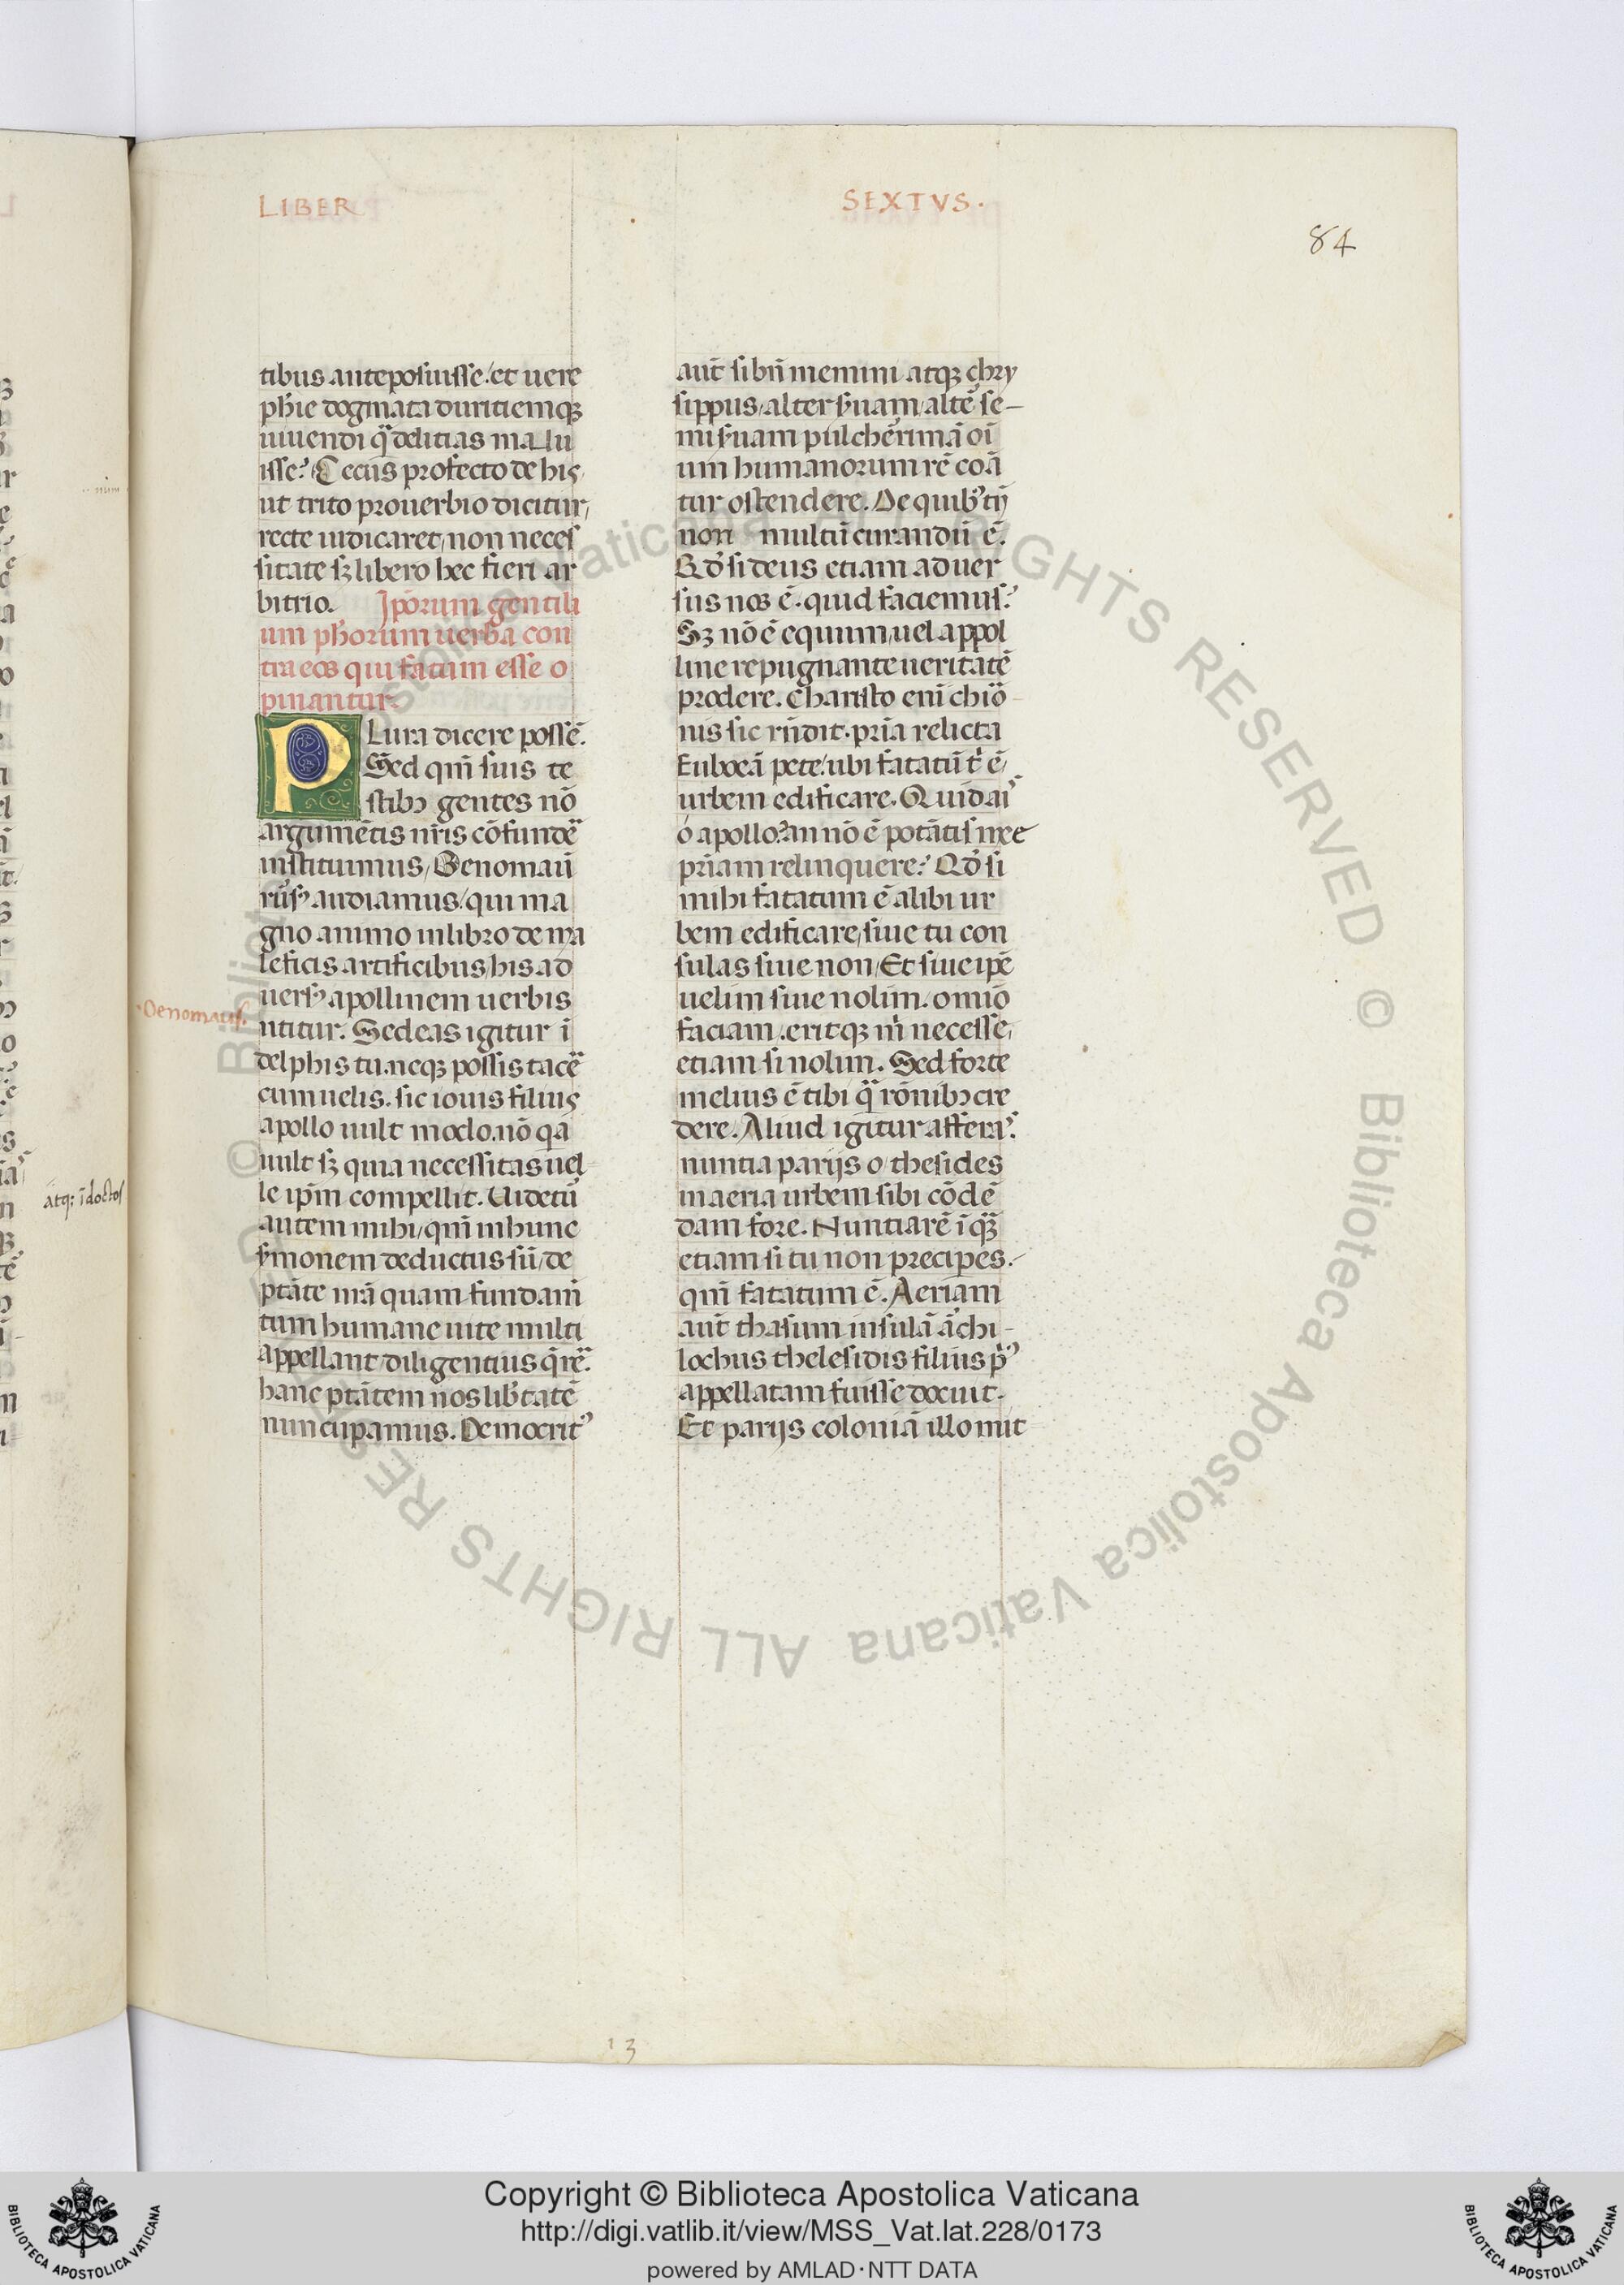 LIBER SEXTVS.
84
tibus anteposuisse. et uere
phie dogmata duritiemqꝫ
uiuendi q̃ delitias malu
isse? Cecus profecto de his,
ut trito prouerbio dicitur,
recte iudicaret, non neces
sitate sꝫ libero hec fieri ar
bitrio. Ipõrum gentili
um ph̃orum uerba con
tra eos qui fatum esse o
pinantur.
PLura dicere possẽ.
Sed qm̃ suis te
stibꝫ gentes nõ
argumẽtis nr̃is cõfundẽ
instituimus, Oenomaũ
rũsꝰ audiamus, qui ma
gno animo in libro de ma
leficis artificibus, his ad
uersꝰ apollinem uerbis
utitur. Sedeas igitur ĩ
delphis tu. neqꝫ possis tacẽ
cum uelis. sic iouis filius
apollo uult modo. nõ qa
uult sꝫ quia necessitas uel
le ip̃m compellit. Uidetũ
autem mihi, qm̃ in hunc
s̃monem deductus sũ, de
ptãte nr̃a quam fundam̃
tum humane uite multi
appellant, diligentius q̃rẽ.
hanc ptãtem nos lib̃tatẽ
nuncupamus. Democritꝰ
Oenomaus.
atqꝫ ĩdoctos
aut̃ sibñ memini atqꝫ chry
sippus, alter s̃uam, altẽ se-
mis̃uam pulcherrimã oĩ
um humanorum rẽ coã
tur ostendere. De quibꝰ tñ
non multũ curandũ ẽ.
Qđ si deus etiam aduer
sus nos ẽ. quid faciemus?
Sꝫ nõ ẽ equum, uel appol
line repugnante ueritatẽ
prodere. Charisto enĩ chiõ
nis sic rñdit. pr̃ia relicta
Euboeã pete. ubi fatatũ t̃ ẽ,
urbem edificare. Quid ais
o apollo? an nõ ẽ potãtis mee
priam relinquere? Qđ si
mihi fatatum ẽ alibi ur
bem edificare, siue tu con
sulas siue non, Et siue ipẽ
uelim siue nolim. omĩo
faciam. eritqꝫ m̃ necesse,
etiam si nolim. Sed forte
melius ẽ tibi q̃ rõnibꝫ cre
dere. Aliud igitur afferas.
nuntia parijs o thesides
in aeria urbem sibi cõdẽ
dam fore. Nuntiarẽ ĩq̃
etiam si tu non precipes.
qm̃ fatatum ẽ. Aeriam
aut̃ thasum insulã ãchi-
lochus thelesidis filius p̃ꝰ
appellatam fuisse docuit.
Et parijs coloniã illo mit
13
Copyright © Biblioteca Apostolica Vaticana
http://digi.vatlib.it/view/MSS_Vat.lat.228/0173
powered by AMLAD·NTT DATA
BIBLIOTECA APOSTOLICA VATICANA
BIBLIOTECA APOSTOLICA VATICANA
© Biblioteca Apostolica Vaticana ALL RIGHTS RESERVED © Biblioteca Apostolica Vaticana ALL RIGHTS RESERVED